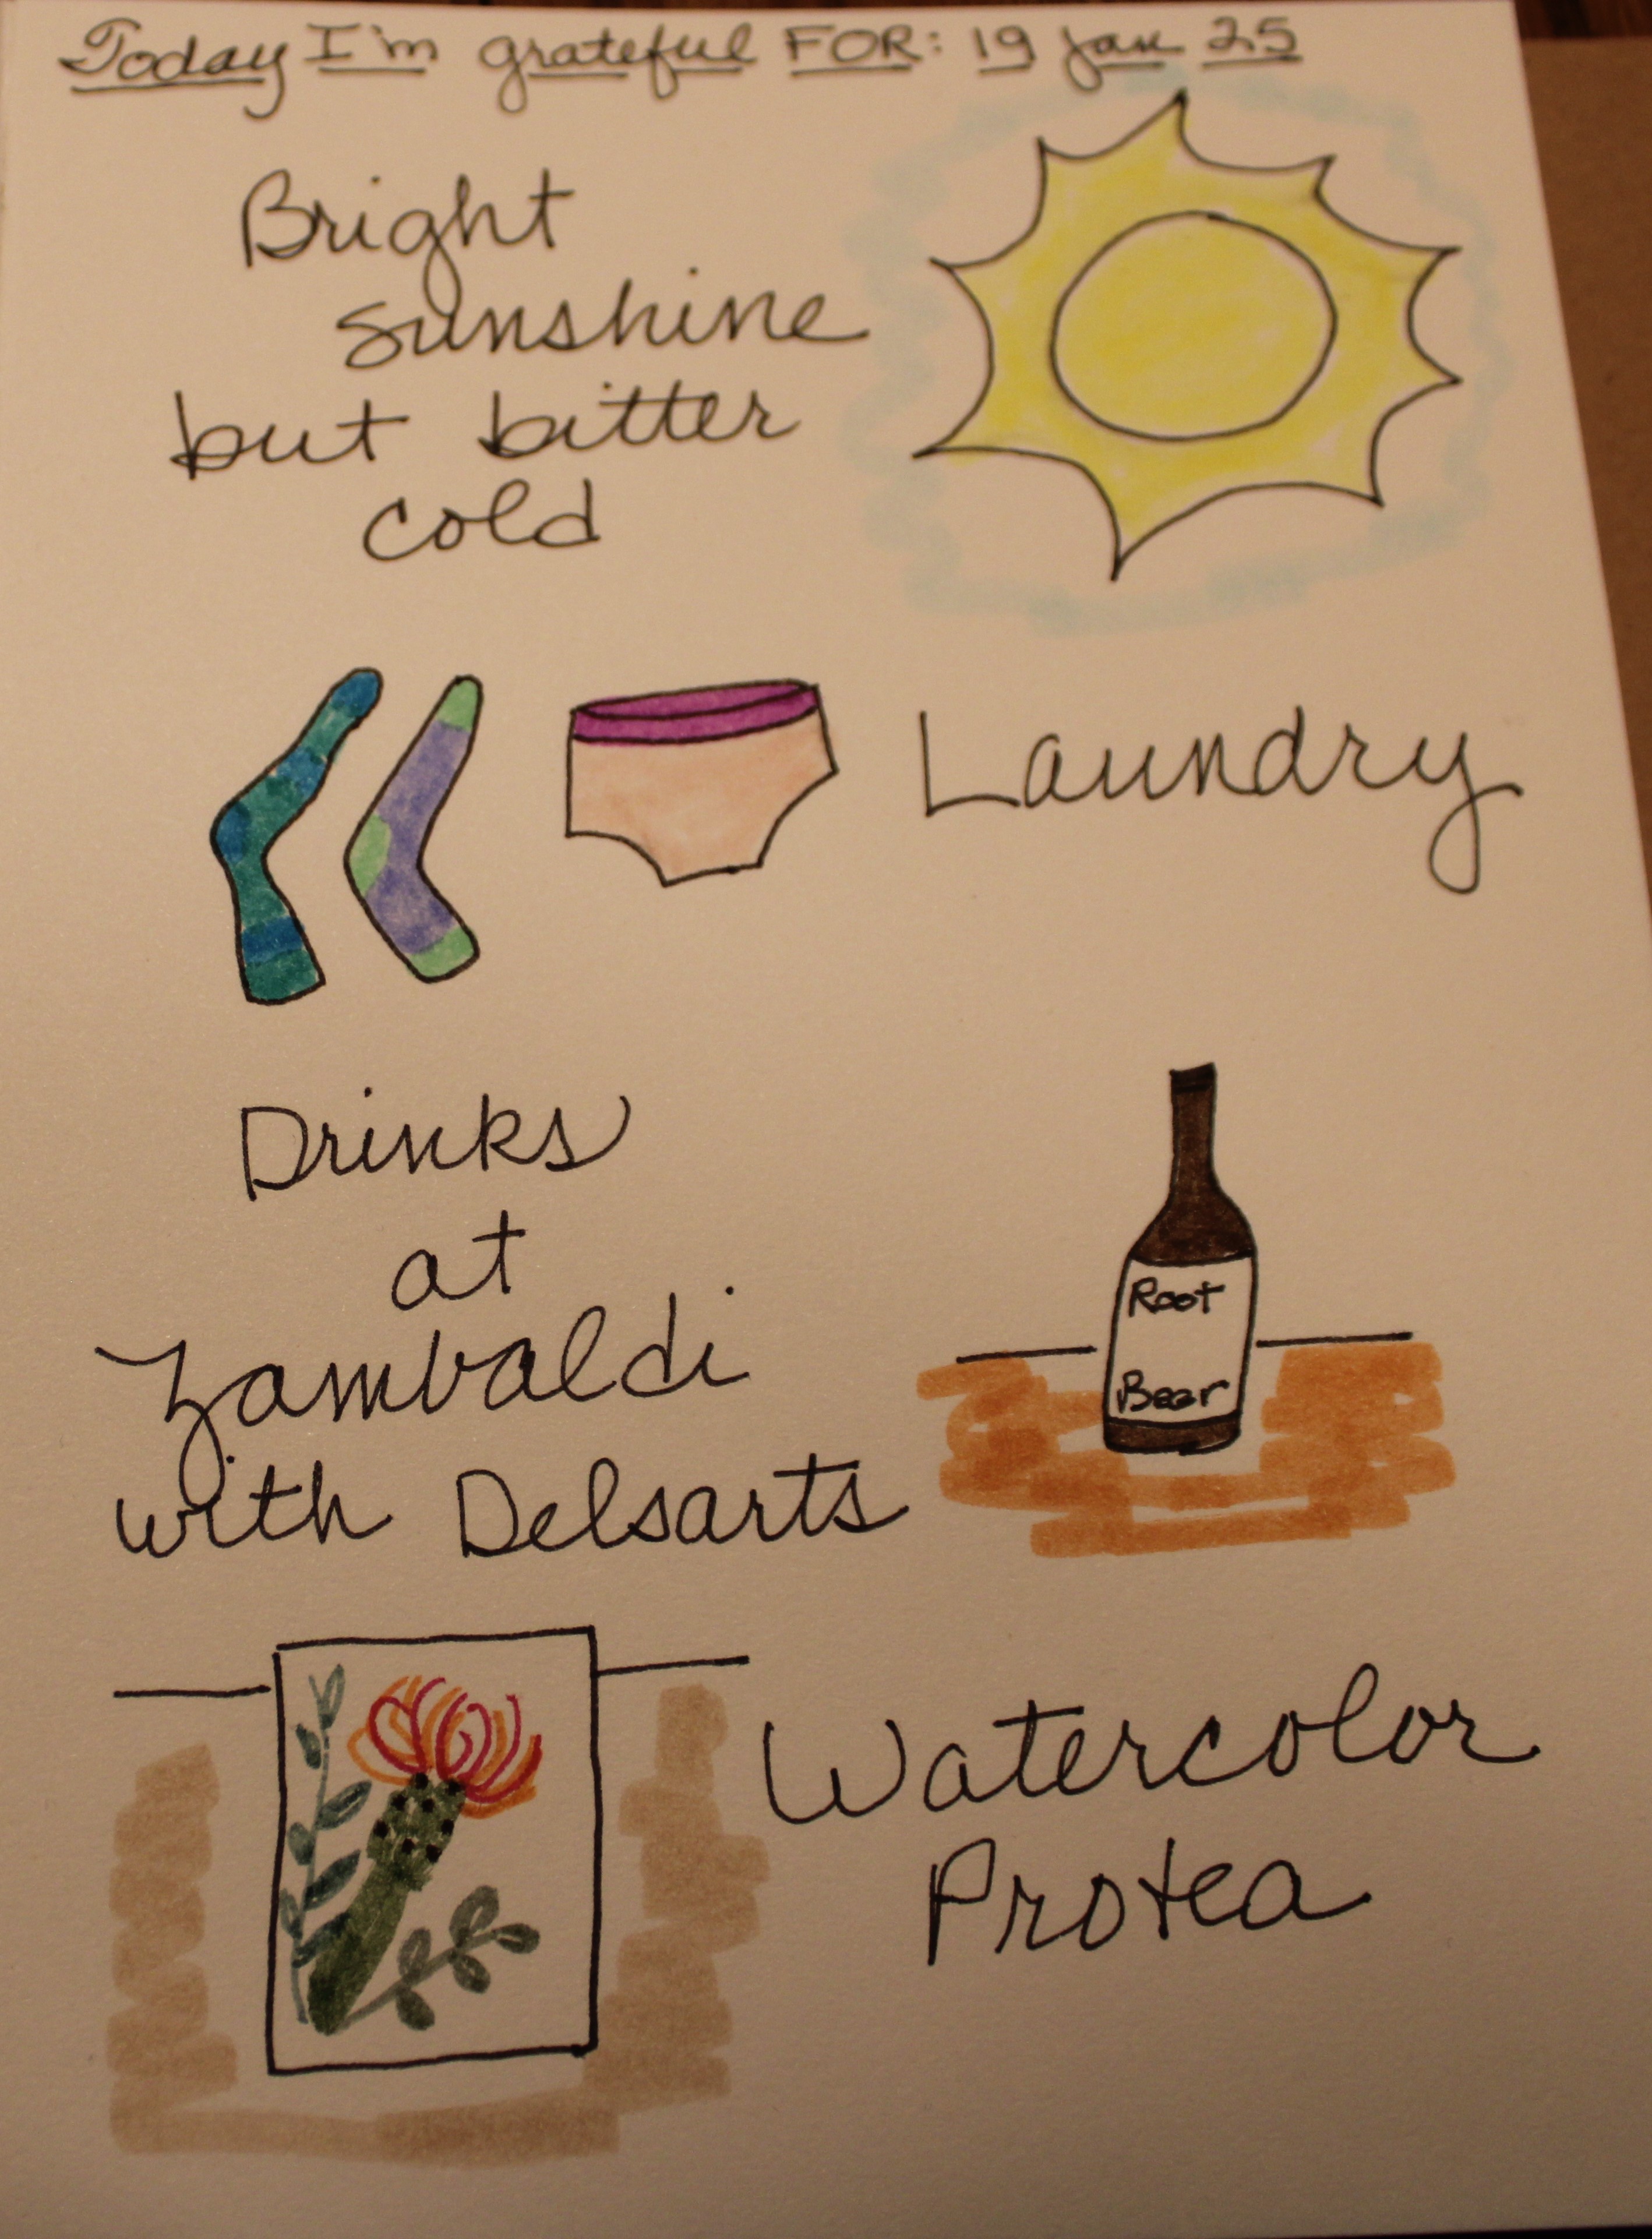 Today I'm grateful FOR: 19 Jan 25
Bright
sunshine
but bitter
cold
Laundry
Drinks
at
Zambaldi
with Delsarts
Root
Beer
Watercolor
Protea